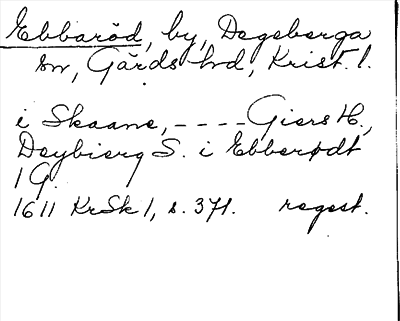 Ebbaröd, by, Degeberga
sn, Gärds hd, Krist. l.
i Skaane, - - - - Giers H.,
Deybierg S. i Ebberødt
1 G.
1611 KrSk 1, s. 371. regest.